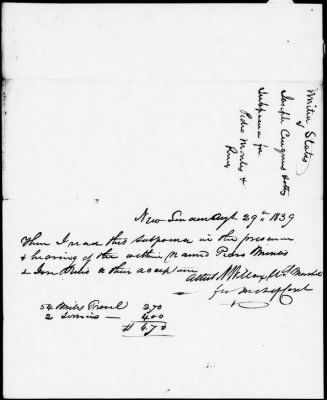 United States
v
Joseph Cinques & others
Subpoena for
Pedro Montes &
Ruiz
New London Augt 29th 1839
Then I read this subpoena in the presence
& hearing of the within named Pedro Montes
& Jose Ruiz & their acceptance
Attest N Wilcox, U.S. Marshal
for
54 Miles Travel 270
2 Services — 400
$ 4.70